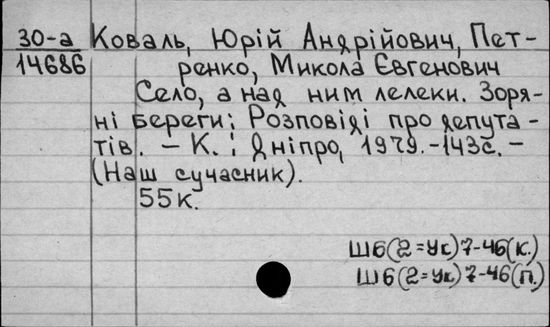 30-а Коваль, Юрій Андрійович, Пет-
14686 ренко, Микола Євгенович
Село, а над ним лелеки. Зоря-
ні береги: Розповіді про депута-
тів. – К.: Дніпро, 1979.-143с. –
(Наш сучасник).
55к.
Ш6(2=Ук)7-46(К.)
Ш6(2=Ук)7-46(П.)